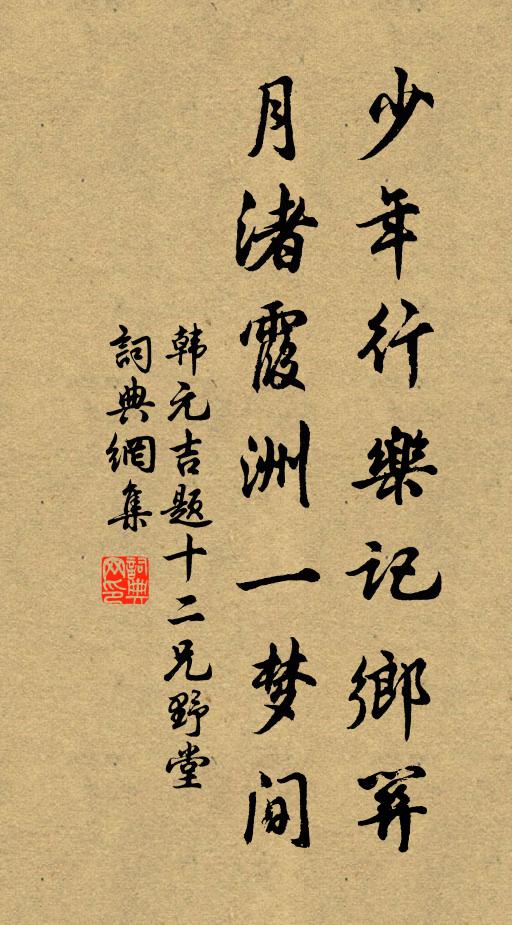 少年行樂記鄉關
月渚霞洲一梦间
韩元吉题十二兄野堂
詞典網集
詞典网印